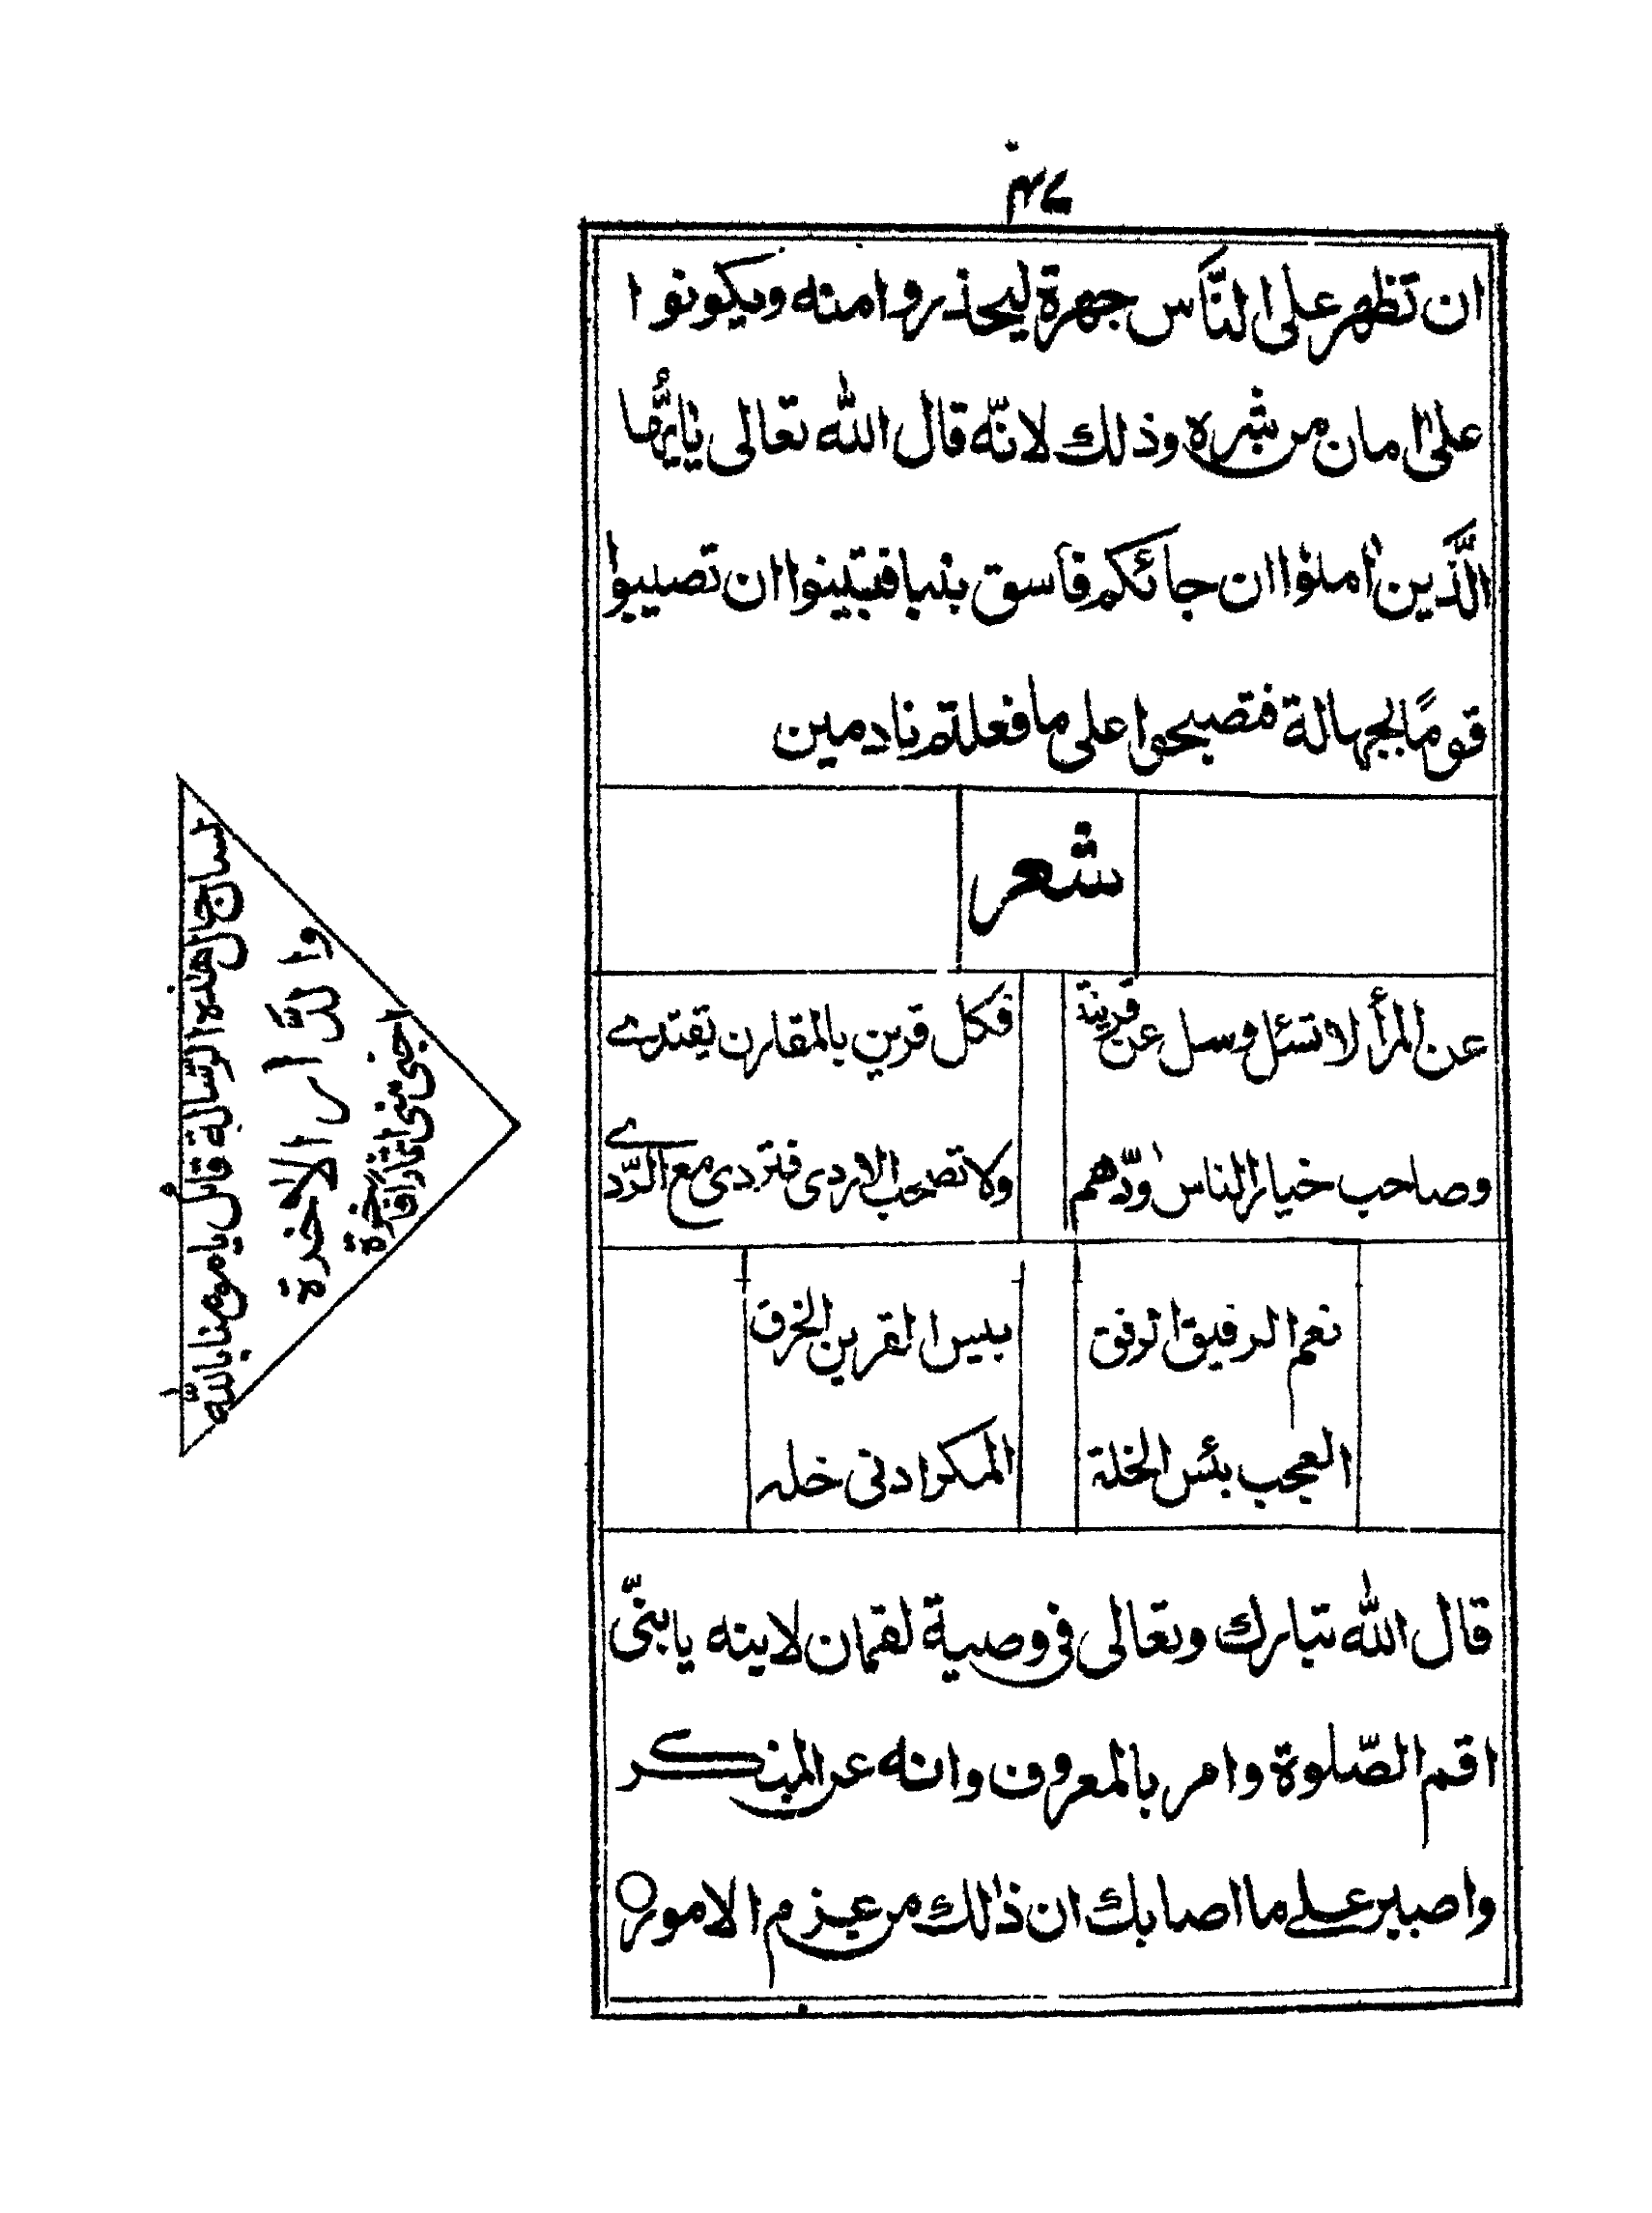 ان تظهر على النّاس جهرة ليحذروا منه ويكونوا
على امان من شره وذلك لانّه قال الله تعالى يايّها
الّذين امنوا ان جائكم فاسق بنبا فتبينوا ان تصيبوا
قومًا بجهالة فتصبحوا على ما فعلتم نادمين
شعر
عن المرأ لا تسئل وسل عن قرينة فكل قرين بالمقارن يقتدے
وصاحب خيار الناس ودّهم ولا تصحب الاردى فتردى مع الرّدے
نعم الرفيق الرفق بيس القرين الخرق
العجب بئس الخلة المكر ادنى خله
قال الله تبارك وتعالى فى وصية لقمان لابنه يابنىّ
اقم الصّلوة وامر بالمعروف وانه عن المنكر
واصبر على ما اصابك ان ذلك من عزم الامور
لسان حال هذه الرسالة قائل يا مومنا بالله
والدّار الاخرة
اجنى